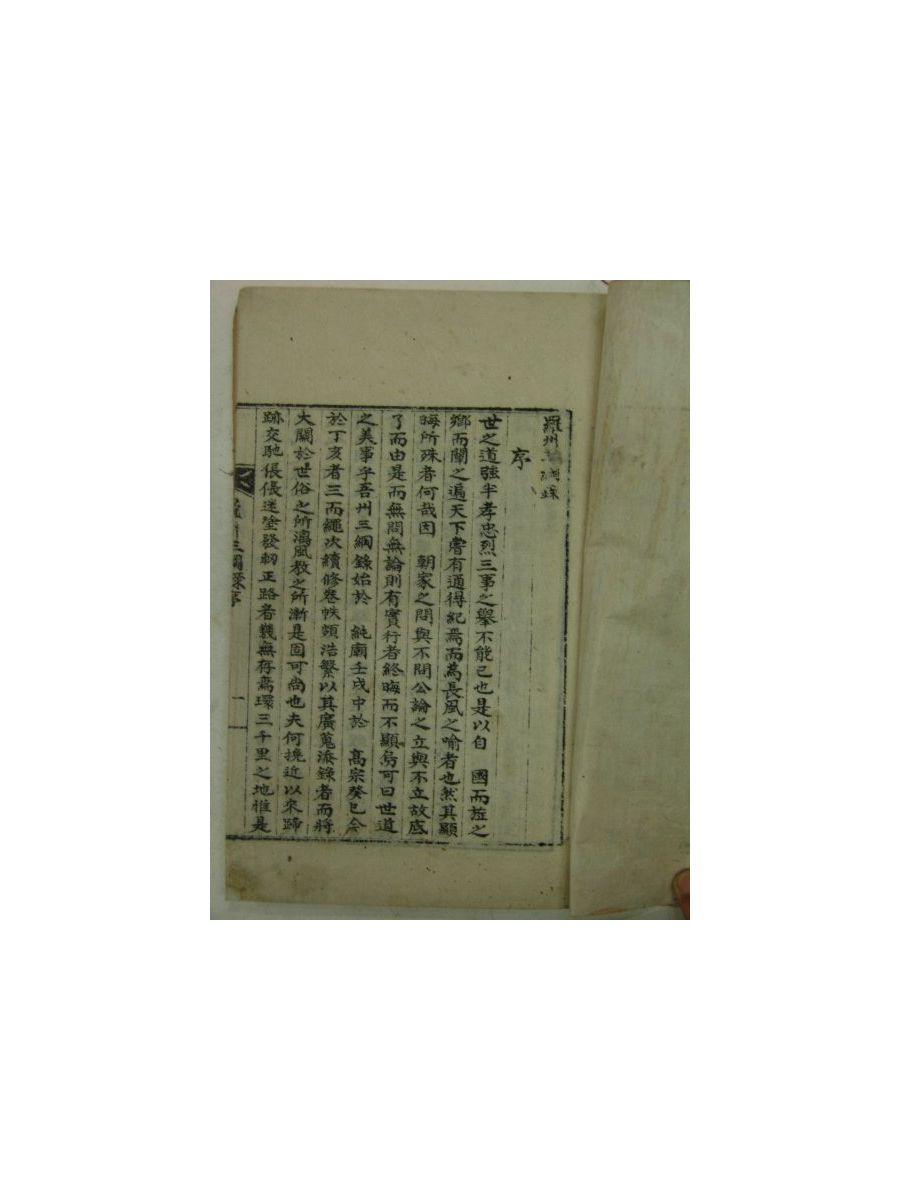 羅州三綱錄
序
世之道強半孝忠烈三事之擧不能已也是以自 國而旌之
鄕而闡之遍天下嘗有通得紀焉而爲長風之喻者也然其顯
晦所殊者何哉因 朝家之問與不問公論之立與不立故底
了而由是而無問無論則有實行者終晦而不顯烏可曰世道
之美事乎吾州三綱錄始於 純廟壬戌中於 高宗癸巳今
於丁亥者三而繩次續修卷帙頗浩繁以其廣蒐添錄者而將
大關於世俗之所漓風敎之所漸是固可尚也夫何挽近以來蹄
跡交馳倀倀迷塗發軔正路者幾無存焉環三千里之地惟是
三綱錄序
一